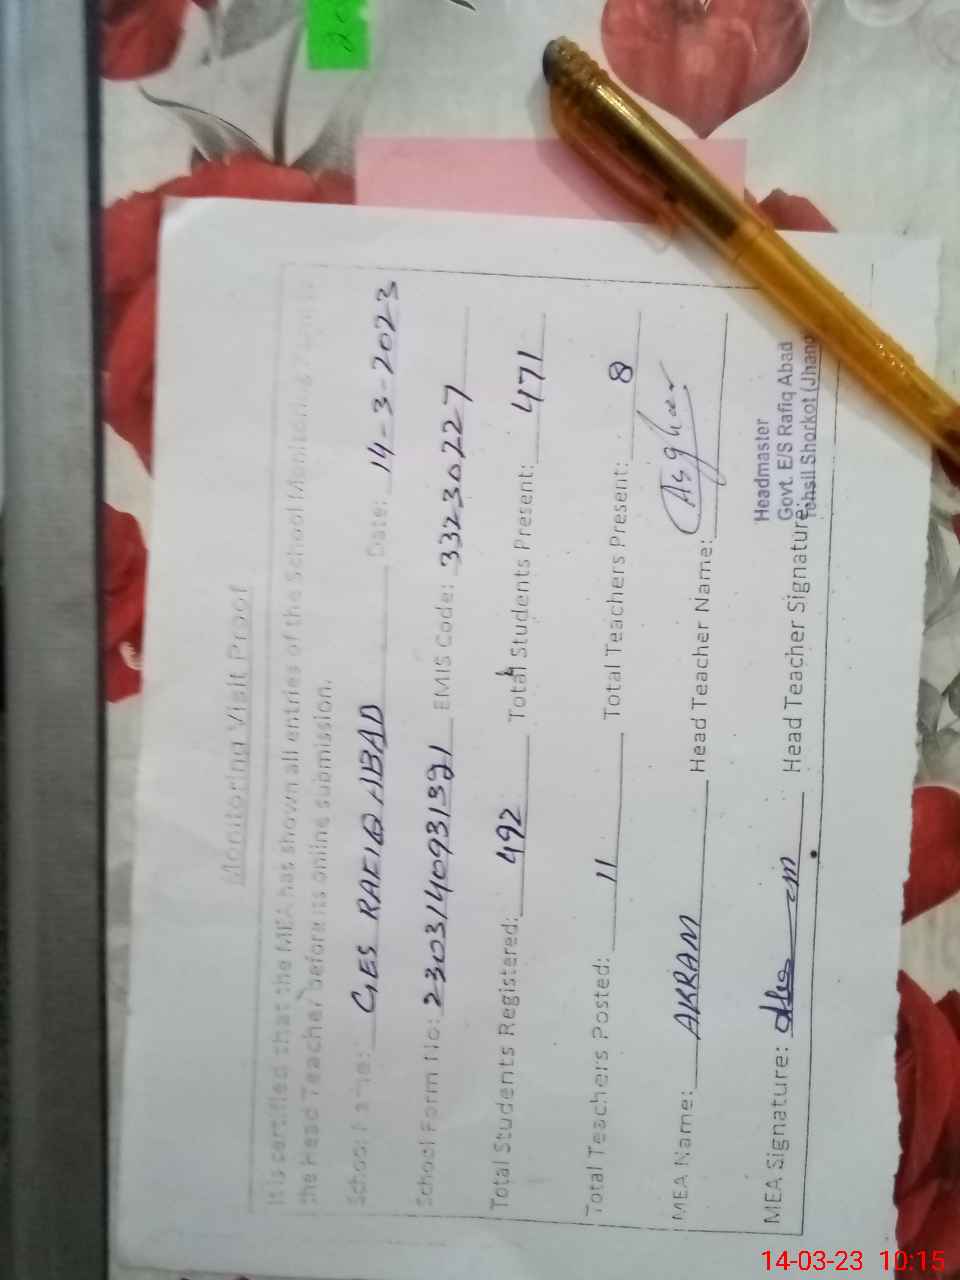 Monitoring Visit Proof
It is certified that the MEA has shown all entries of the School Monitoring
the Head Teacher before its online submission.
School Name: GES RAFIQ ABAD Date: 14-3-2023
School Form No: EMIS Code: 33230227
Total Students Registered: 492 Total Students Present: 471
Total Teachers Posted: 11 Total Teachers Present: 8
MEA Name: AKRAM Head Teacher Name: Asghar
Headmaster
Govt. E/S Rafiq Abad
Tehsil Shorkot (Jhang
MEA Signature: Head Teacher Signature:
14-03-23 10:15